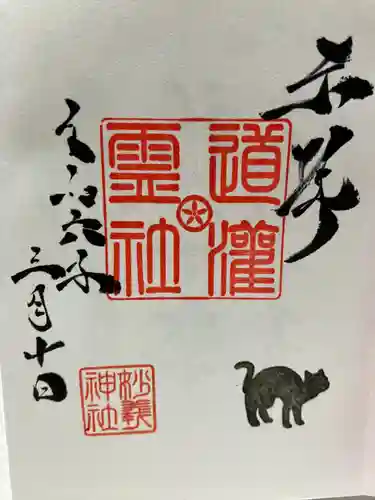 奉拝
道灌
霊社
令和六年
三月十日
妙義
神社